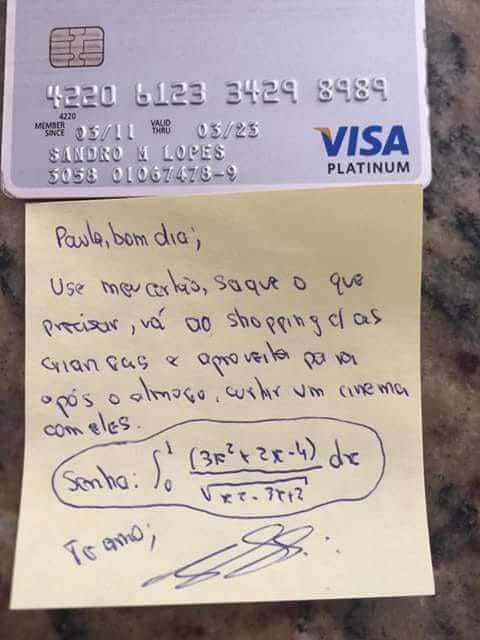 4220 6123 3429 8989
4220
MEMBER SINCE 03/11 VALID THRU 03/23
SANDRO M LOPES
3058 01067478-9
VISA
PLATINUM
Paula, bom dia;
Use meu cartão, saque o que
precisar, vá ao shopping c/ as
crianças e aproveita para
após o almoço, curtir um cinema
com eles.
Senha: ∫₀¹ (3x²+2x-4)/√(x²-3x+2) dx
Te amo;